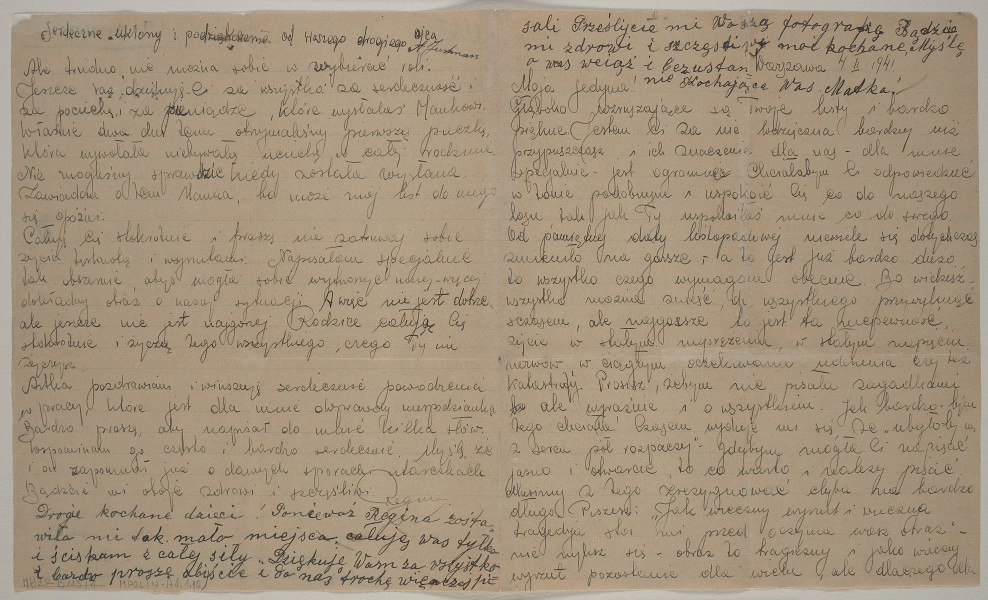 Serdeczne ukłony i podziękowanie od Waszego drogiego ojca
Ale trudno, nie można sobie w wybierać roli.
Jeszcze raz dziękuję Ci za wszystko za serdeczność
za pociechę i za pieniądze, które wysłałaś Mańkowi.
Właśnie dwa dni temu otrzymaliśmy pierwszą paczkę,
która wywołała niebywałą uciechę w całej rodzinie.
Nie mogliśmy sprawdzić kiedy została wysłana
Zawiadom o tem Mańka, bo może mój list do niego
się opóźni.
Całuję Cię stokrotnie i proszę nie zatruwaj sobie
życia tęsknotą i wyrzutami. Napisałam specjalnie
tak obszernie abyś mogła sobie wytworzyć mniej-więcej
dokładny obraz o naszej sytuacji. A więc nie jest dobrze
ale jeszcze nie jest najgorzej Rodzice całują Cię
stokrotnie i życzą tego wszystkiego, czego Ty im
życzysz.
pozdrawiam i winszuję serdecznie powodzenia
w pracy, które jest dla mnie niespodzianką
Bardzo proszę, aby napisał do mnie kilka słów.
Wspominam go często i bardzo serdecznie. Myślę, że
i on zapomniał już o dawnych sporach i utarczkach
Bądźcie mi oboje zdrowi i szczęśliwi
Regina
Drogie kochane dzieci! Poniewaz Regina zosta-
wiła mi tak mało miejsca, całuję was tylko
i ściskam z całej siły. Dziękuję Wam za wszystko
i bardo proszę abyście i do nas trochę więcej pi-
sali Prześlijcie mi Waszą fotografię Bądźcie
mi zdrowi i szczęśliwi moi kochane, Myślę
o was wciąż i bezustan
nie Kochająca Was Matka!
Warszawa 4 II 1941
Moja jedyna!
Głęboko wzruszające są Twoje listy i bardzo
piękne Jestem Ci za nie wdzięczna bardziej niż
przypuszczasz i ich znaczenie dla nas - dla mnie
specjalnie - jest ogromne Chciałabym Ci odpowiedzieć
w tonie podobnym i uspokoić Cię co do naszego
losu tak jak Ty uspokoiłaś mnie co do swego
Od pamiętnej daty listopadowej niewiele się dotychczas
zmieniło na gorsze, - a to jest już bardzo dużo
to wszystko czego wymagam obecnie. Bo wiekszość
wszystko można znieść, do wszystkiego przywyknąć
z czasem, ale najgorsze to jest ta niepewność,
życie w stałym naprężeniu, w stałym napięciu
nerwów w ciągłym oczekiwaniu czy też
katastrofy. Prosisz, żebym nie pisała zagadkami
ale wyraźnie i o wszystkiem. Jak bardzo-bym
tego chciała! Czasem wydaje mi się że "ubyłoby mi
z serca pół rozpaczy" - gdybym mogła Ci napisać
jasno i otwarcie to co warto i należy pisać.
Musimy z tego zrezygnować chyba na bardzo
długo. Piszesz: "Jak wieczny wyrzut i wieczna
tragedja stoi mi przed oczyma wasz obraz"
nie mylisz się - obraz to tragiczny i jako wieczny
wyrzut pozostanie dla wielu, ale dlaczego dla